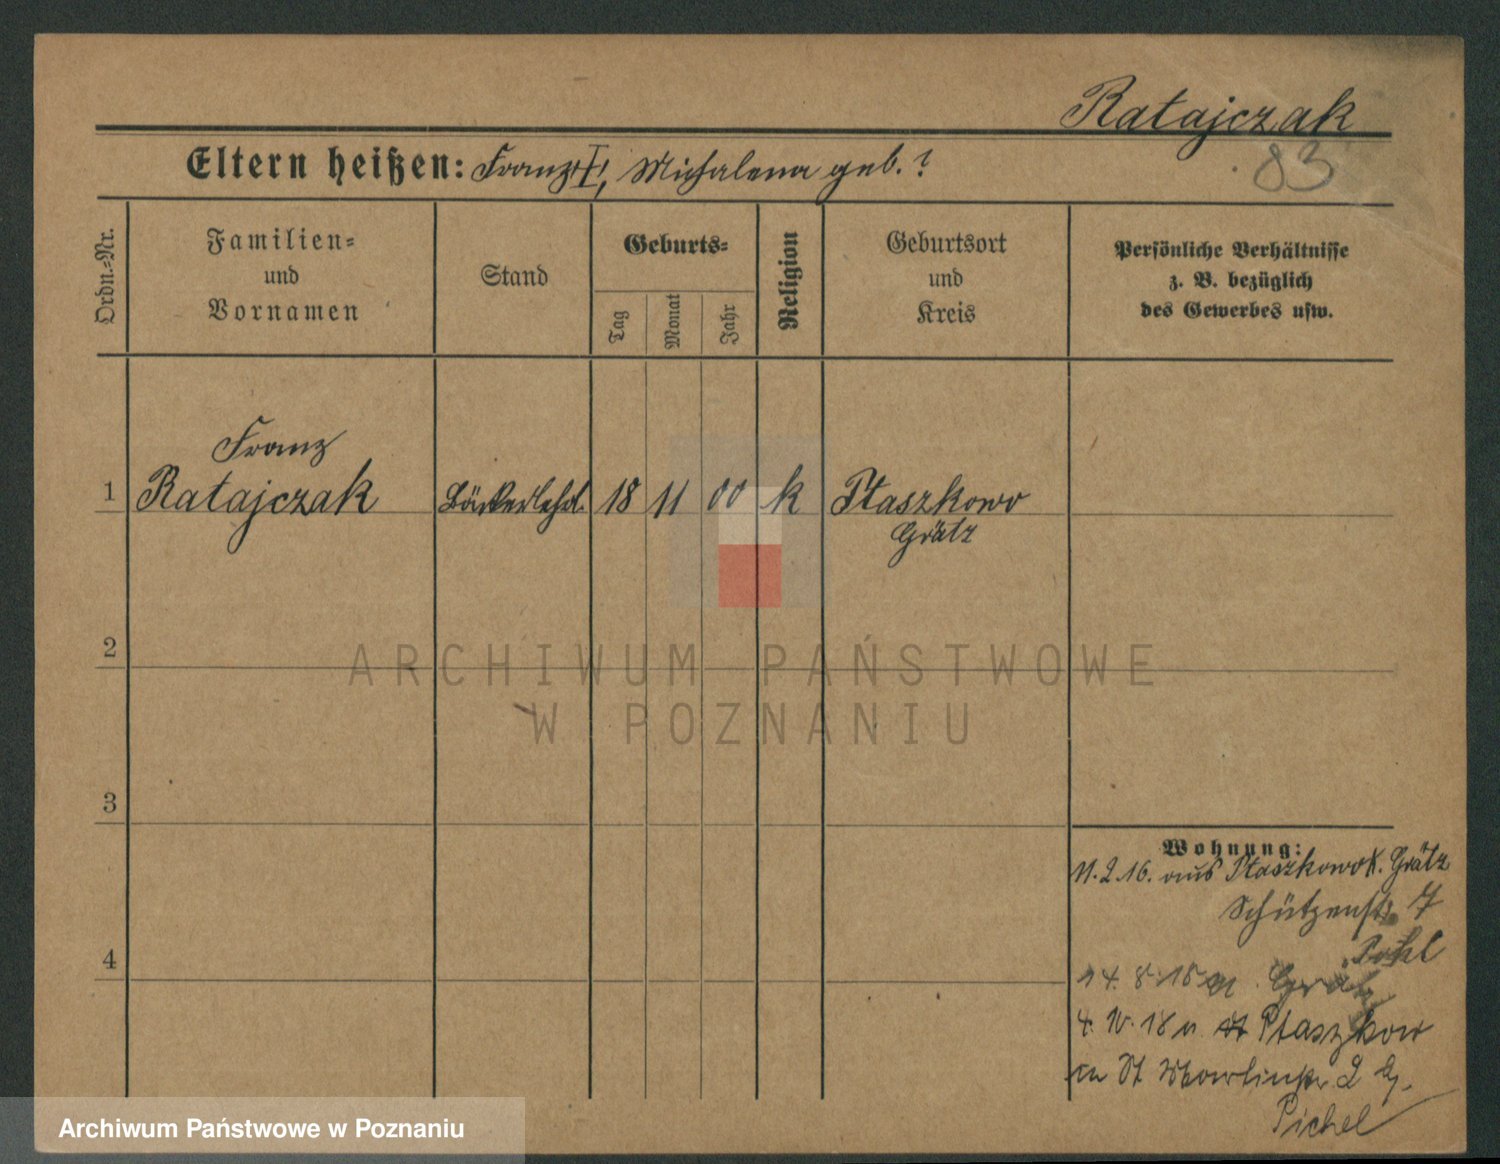 Ratajczak
83
Eltern heißen: Franz †, Michalena geb. ?
Ordn.-Nr.
Familien-
und
Vornamen
Stand
Geburts-
Tag
Monat
Jahr
Religion
Geburtsort
und
Kreis
Persönliche Verhältnisse
z. B. bezüglich
des Gewerbes usw.
Franz
1 Ratajczak Bäckerlehrl. 18 11 00 k Ptaszkowo
Grätz
2
3
4
Wohnung:
11.2.16. aus Ptaszkowo K. Grätz
Schützenstr. 7
Pohl
14. 8. 18 n. Grätz
4. 10. 18 n Ptaszkow
St Martinstr. 2
Pichel
ARCHIWUM PAŃSTWOWE
W POZNANIU
Archiwum Państwowe w Poznaniu